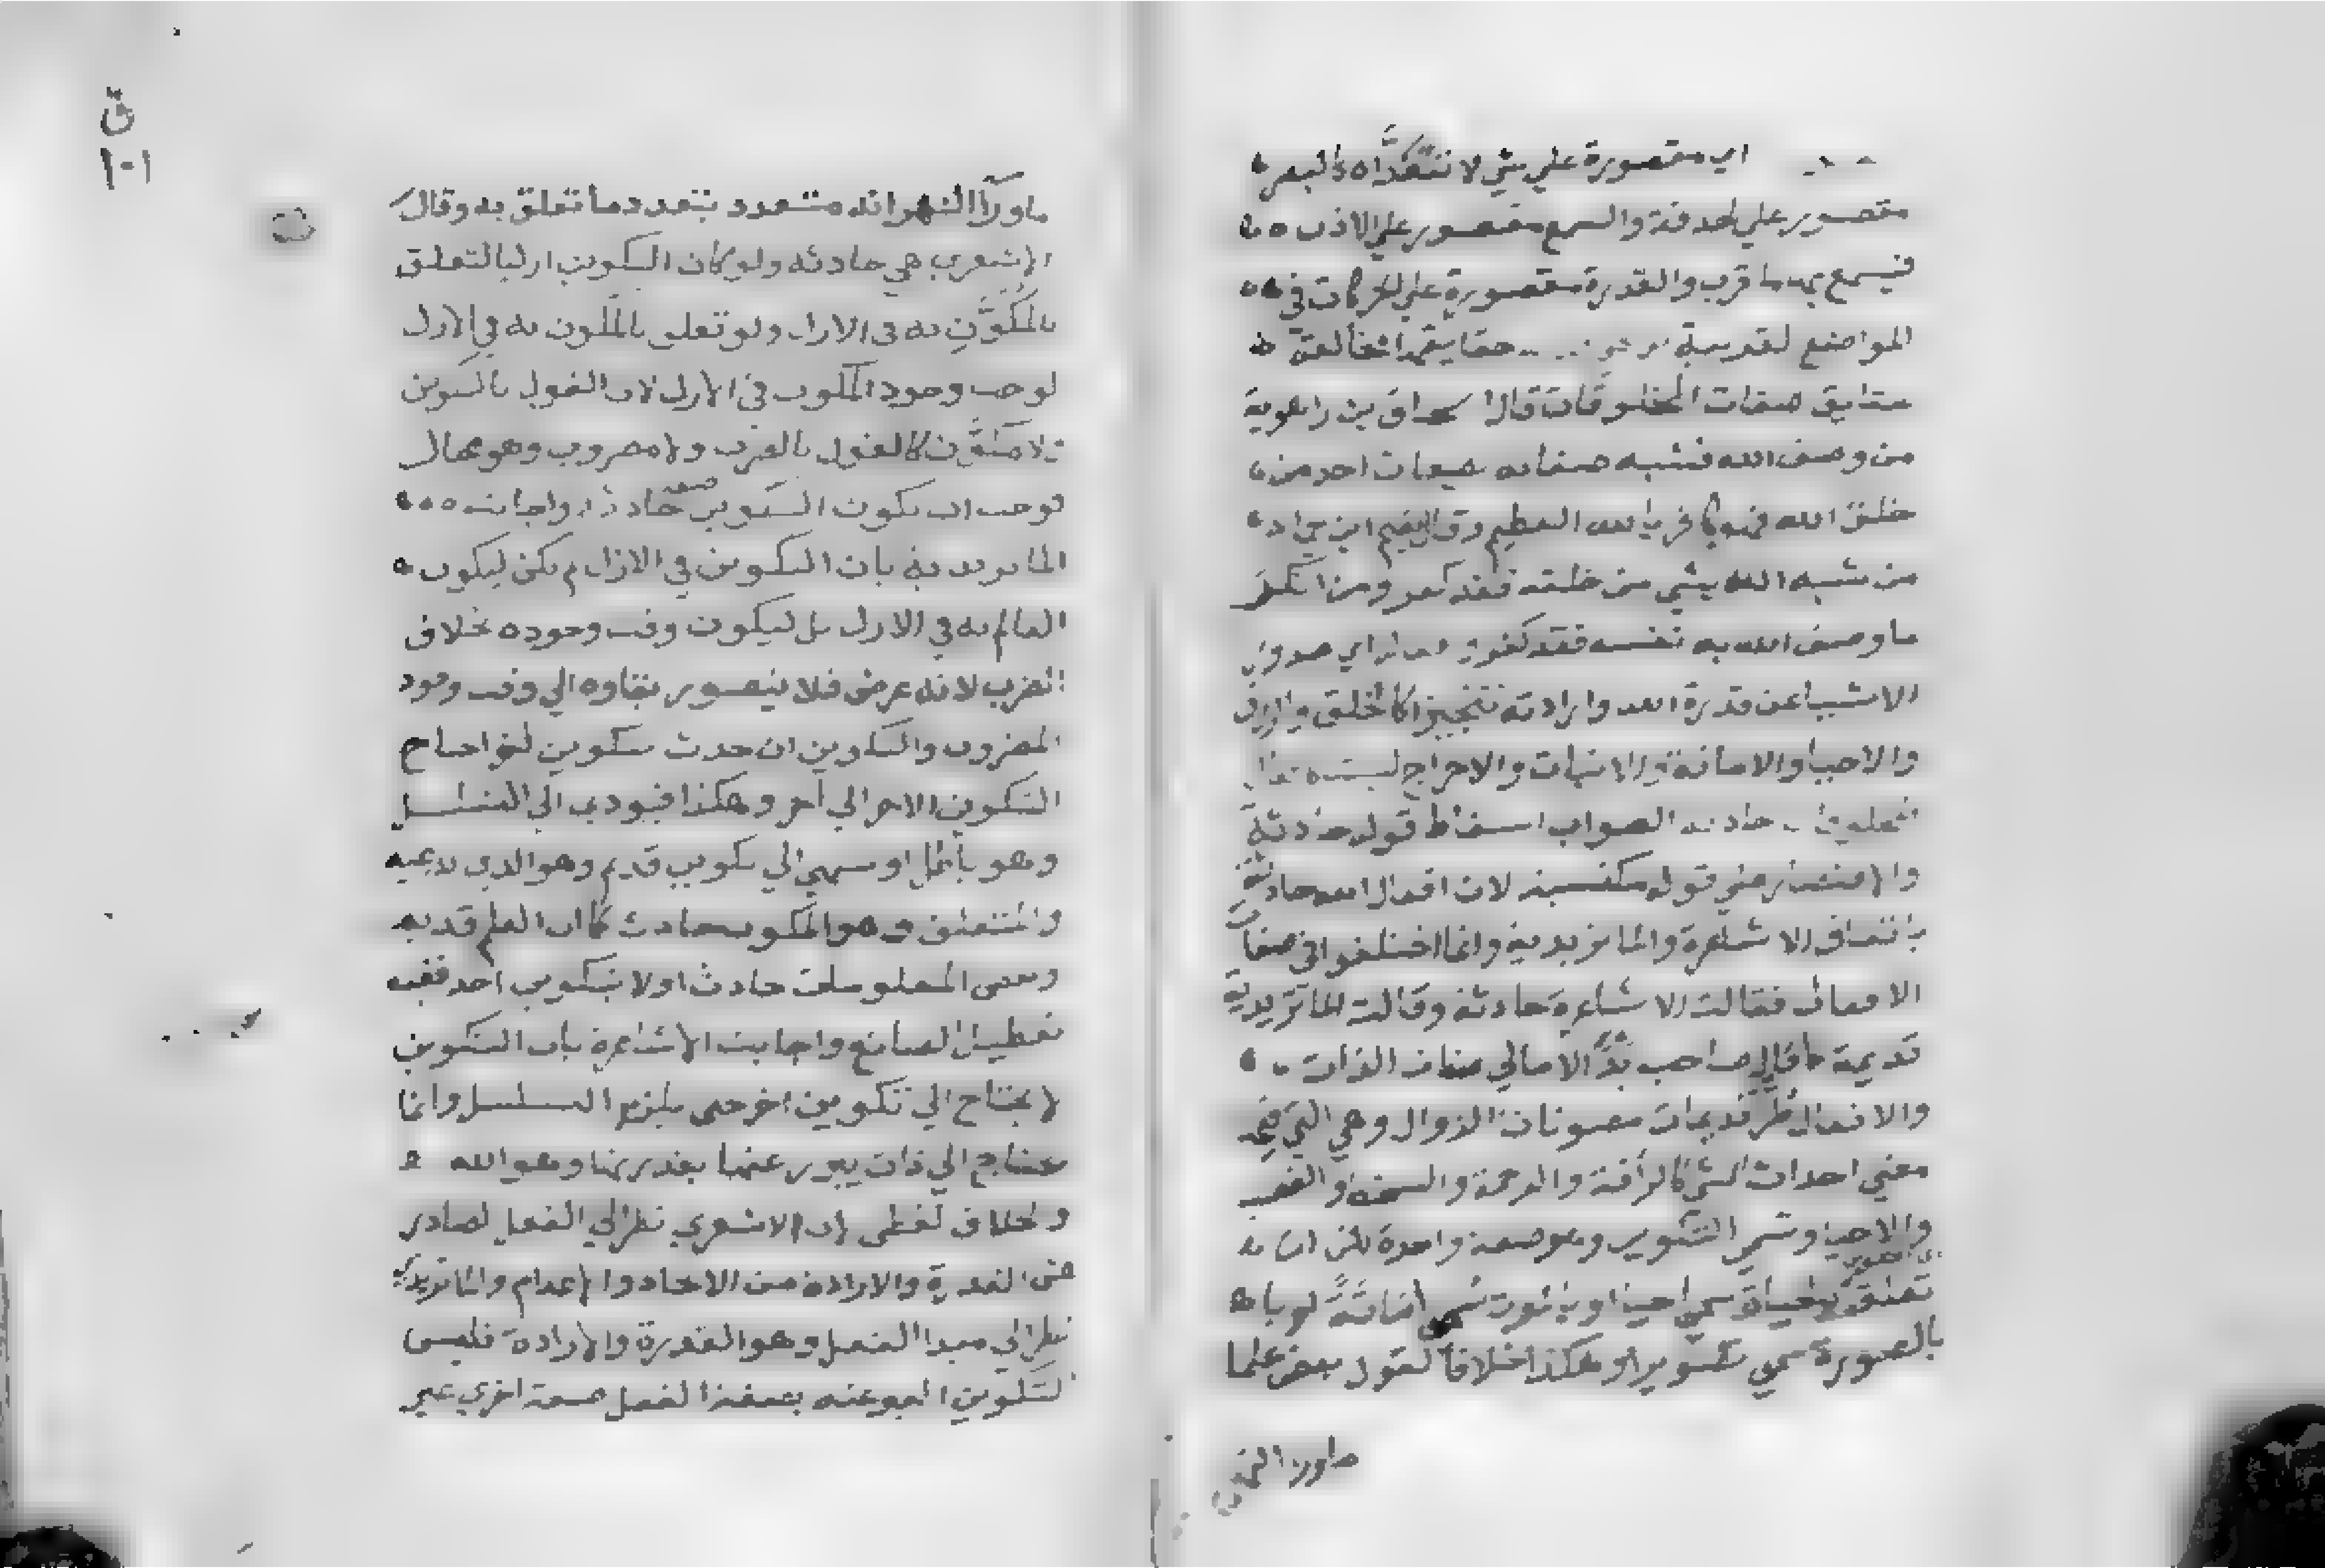 اي مقصورة على شي لا تتعداه والبصر
مقصور علي الحدقة والسمع مقصور علي الاذن
فيسمع بها ما قرب والقدرة مقصورة علي الحركات في
المواضع القريبة
صفات المخلوقات قال اسحاق بن راهوية
من وصف الله فشبه صفاته بصفات احد من
خلق الله فهو كافر بالله العظيم وقال نعيم ابن حماد
من شبه الله بشي من خلقه فقد كفر ومن انكر
ما وصف الله به نفسه فقد كفر اي صدور
الاشيا عن قدرة الله وارادته تنجيزا كالخلق والرزق
والاحيا والاماتة والانبات والاخراج ليست
حادثه الصواب اسقاط قوله حادثة
والاقتصار على قوله لان افعال الله حادثة
باتفاق الاشاعرة والماتريدية وانما اختلفوا في صفات
الافعال فقالت الاشاعرة حادثة وقالت الماتريدية
قديمة كما قال صاحب بدء الامالي صفات الذات
والافعال طرا قديمات مصونات الزوال وهي التي فيها
معني احداث الشي كالرأفة والرحمة والسخط والغضب
والاحيا وتسمي التكوين وهو صفة واحدة لكن ان
تعلق بالحياة سمي احيا او بالموت سمي اماتة او با
بالصورة سمي تصويرا وهكذا خلافا لقول بعض علما
ماورا النهر
ق
١٠١
ماورآ النهر انه متعدد بتعدد ما تعلق به وقال
الاشعري هي حادثه ولو كان التكوين ازليا لتعلق
بالمكون به في الازل ولو تعلق بالمكون به في الازل
لوجب وجود المكون في الازل لان القول بالتكوين
ولا مكون كالقول بالضرب ولا مضروب وهو محال
فوجب ان يكون التكوين صفة حادثة واجابت
الماتريدية بان التكوين في الازل لم يكن ليكون
العالم به في الازل بل ليكون وقت وجوده بخلاف
الضرب لانه عرض فلا يتصور بقاوه الي وقت وجود
المضروب والتكوين ان حدث بتكوين اخر احتاج
التكوين الاخر الي آخر وهكذا فيودي الي التسلسل
وهو باطل او ينتهي الي تكوين قديم وهو الذي ندعيه
والمتعلق وهو المكون حادث كما ان العلم قديم
وبعض المعلومات حادث اولا بتكوين احد ففيه
تعطيل الصانع واجابت الاشاعرة بان التكوين
لا يحتاج الي تكوين اخر حتى يلزم التسلسل وانما
يحتاج الي ذات يصدر عنها بقدرتها وهو الله
والخلاف لفظي لان الاشعري نظر الي الفعل الصادر
عن القدرة والارادة من الايجاد والاعدام والماتريدية
نظر الي مبدا الفعل وهو القدرة والارادة فليس
التكوين المعبر عنه بصفة الفعل صفة اخري غير